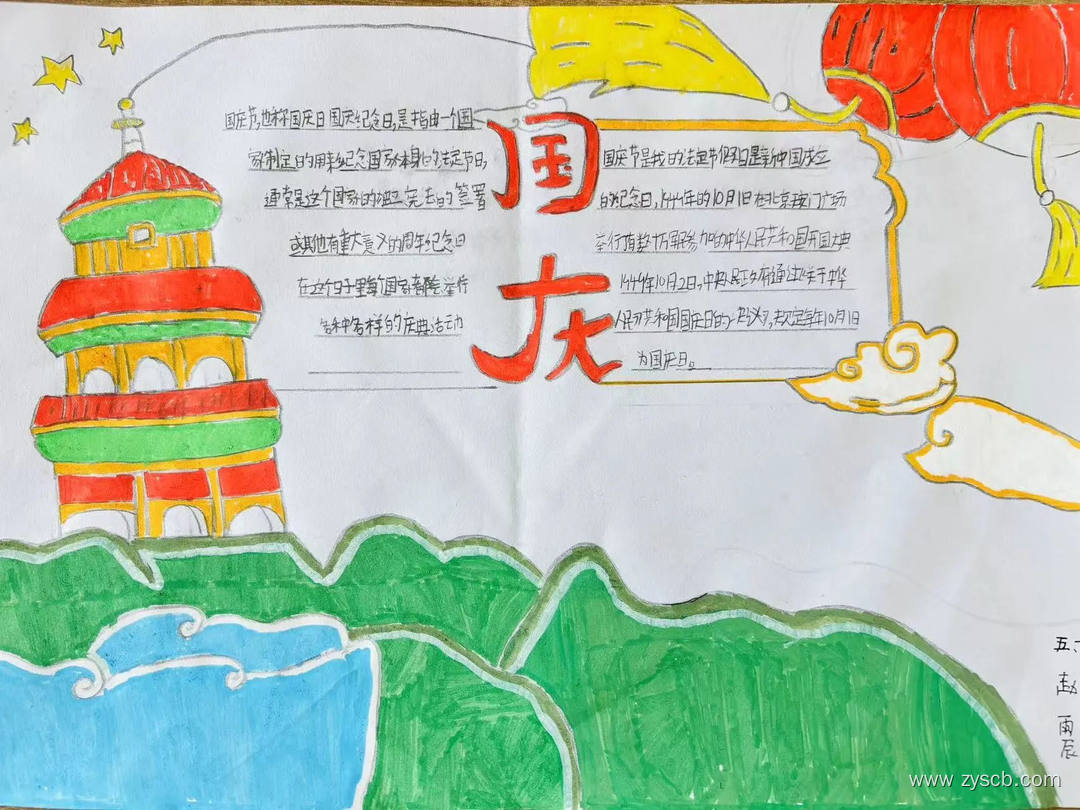 国庆节,也称国庆日国庆纪念日,是指由一个国
家制定的用来纪念国家本身的法定节日,
通常是这个国家的独立、宪法的签署
或其他有重大意义的周年纪念日
在这个日子里每个国家都会举行
各种各样的庆典活动
国庆
国庆节是我的法定节假日是新中国成立
的纪念日,1949年的10月1日在北京天门广场
举行有数十万军民参加的中华人民共和国开国大典
1949年10月2日,中央民政府通过《关于中华
人民共和国国庆日的》,规定每年10月1日
为国庆日。
五六
赵
雨
辰
www.zyscb.com